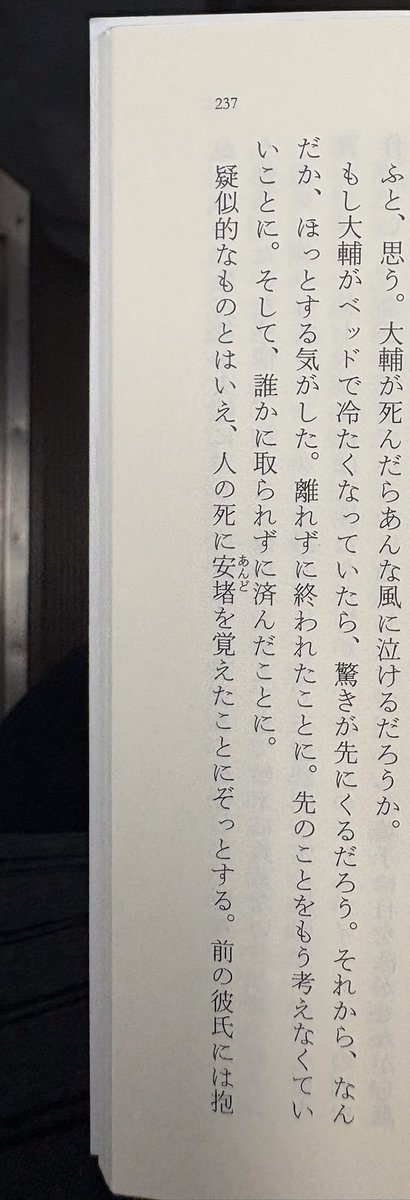 237
ふと、思う。大輔が死んだらあんな風に泣けるだろうか。
もし大輔がベッドで冷たくなっていたら、驚きが先にくるだろう。それから、なん
だか、ほっとする気がした。離れずに終われたことに。先のことをもう考えなくてい
いことに。そして、誰かに取られずに済んだことに。
疑似的なものとはいえ、人の死に安堵を覚えたことにぞっとする。前の彼氏には抱
あんど